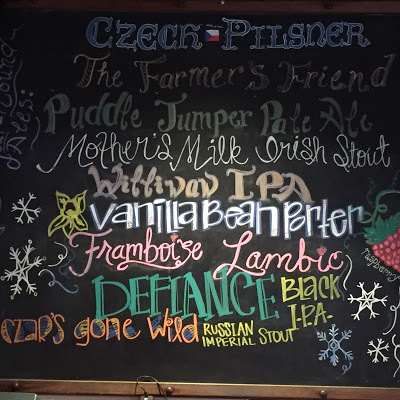 Czech Pilsner
The Farmer's Friend
Puddle Jumper Pale Ale
Mother's Milk Irish Stout
Williwaw IPA
Vanilla Bean Porter
Framboise Lambic
DEFIANCE BLACK I.P.A-
CZAR'S gone Wild RUSSIAN IMPERIAL STOUT
Raspberry
Ales: